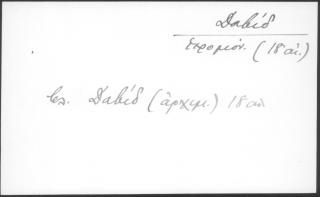 Δαβίδ
ἱερομόν. (18 αἰ.)
βλ. Δαβίδ (ἀρχιμ.) 18 αἰ.